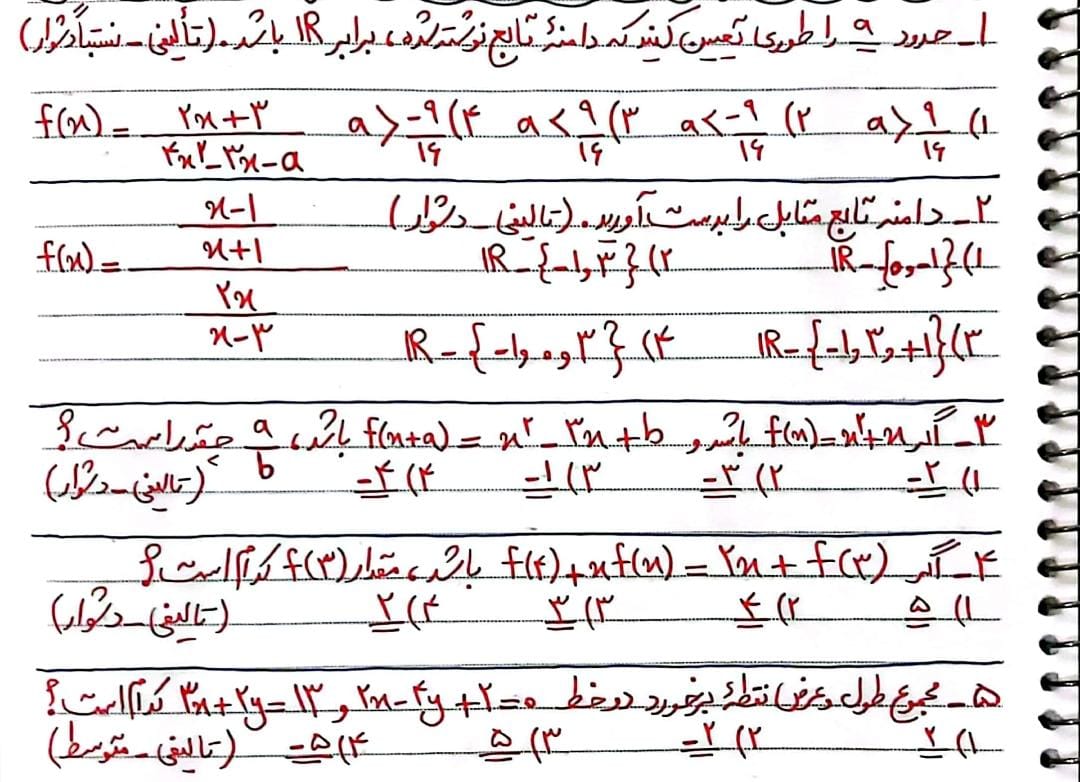 ۱ـ حدود a را طوری تعیین کنید که دامنهٔ تابع نوشته‌شده، برابر IR باشد. (تألیفی ـ نسبتاً دشوار)
f(x) = (۲x+۳)/(۴x²-۳x-a) ۱) a > ۹/۱۶ ۲) a < -۹/۱۶ ۳) a < ۹/۱۶ ۴) a > -۹/۱۶
۲ـ دامنه تابع مقابل را بدست آورید. (تالیفی ـ دشوار)
f(x) = ((x-۱)/(x+۱))/((۲x)/(x-۳)) ۱) IR-{۰,-۱} ۲) IR-{-۱,۳}
۳) IR-{-۱,۳,+۱} ۴) IR-{-۱,۰,۳}
۳ـ اگر f(x)=x²+x باشد و f(x+a) = x²-۳x+b باشد، a/b چقدر است؟
۱) -۲ ۲) -۳ ۳) -۱ ۴) -۴ (تالیفی ـ دشوار)
۴ـ اگر f(۴)+xf(x) = ۲x+f(۳) باشد، مقدار f(۳) کدام است؟
۱) ۵ ۲) ۴ ۳) ۳ ۴) ۲ (تالیفی ـ دشوار)
۵ـ مجموع طول و عرض نقطهٔ برخورد دو خط ۲x-۴y+۲=۰ و ۳x+۲y=۱۳ کدام است؟
۱) ۲ ۲) -۲ ۳) ۵ ۴) -۵ (تالیفی ـ متوسط)